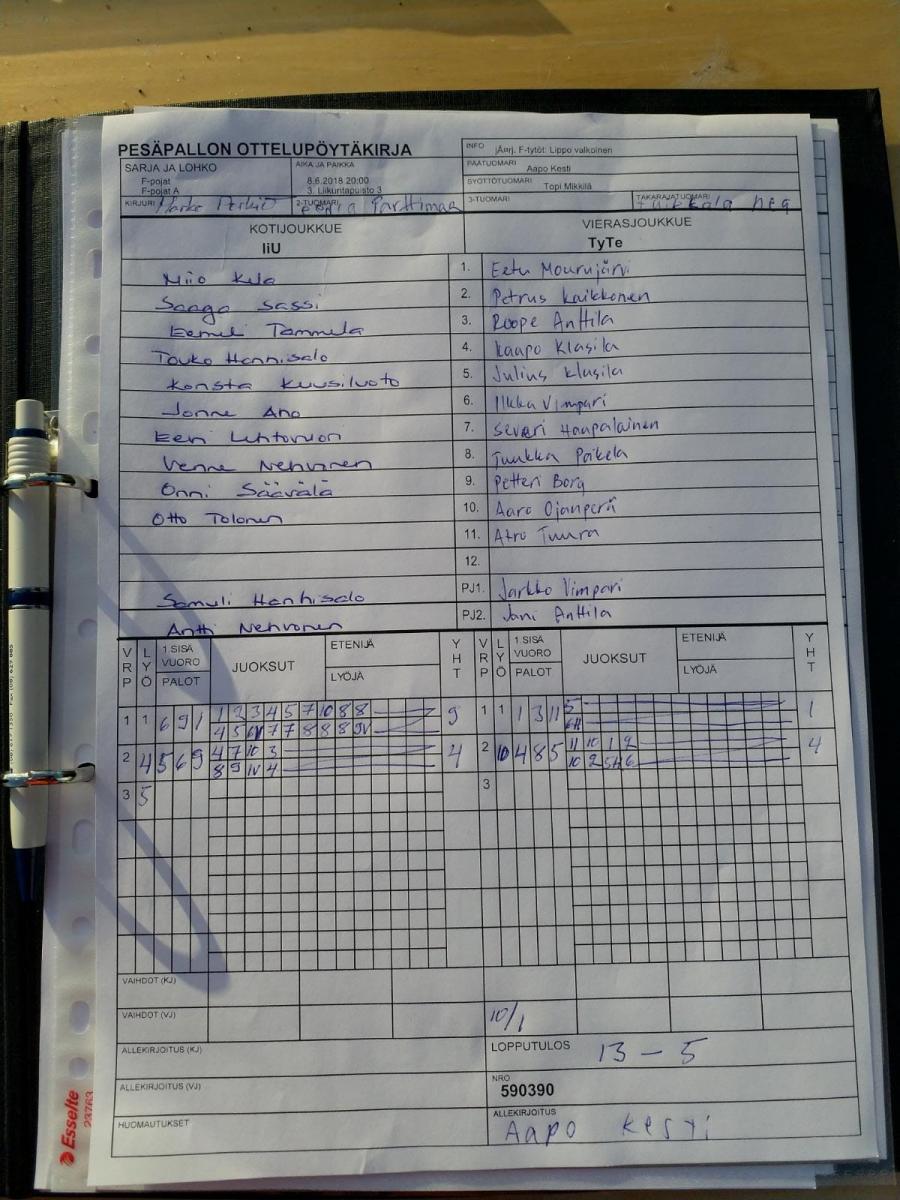 PESÄPALLON OTTELUPÖYTÄKIRJA
INFO jÄnrj. F-tytöt: Lippo valkoinen
SARJA JA LOHKO
F-pojat
F-pojat A
AIKA JA PAIKKA
8.6.2018 20:00
3. Liikuntapuisto 3
PÄÄTUOMARI Aapo Kesti
SYÖTTÖTUOMARI Topi Mikkilä
KIRJURI 2-TUOMARI Parttimaa 3-TUOMARI TAKARAJATUOMARI
KOTIJOUKKUE VIERASJOUKKUE
IiU TyTe
Niio Kela 1. Eetu Mourujärvi
Saaga Sassi 2. Petrus Kaikkonen
Eemeli Tammela 3. Roope Anttila
Touko Hanhisalo 4. Kaapo Klasila
Konsta Kuusiluoto 5. Julius Klasila
Jonne Aho 6. Ilkka Vimpari
Eeri Lehtovuori 7. Severi Haapalainen
Venne Nehvonen 8. Tuukka Paikela
Onni Säävälä 9. Petteri Borg
Otto Tolonen 10. Aaro Ojanperä
11. Atro Tuura
12.
Samuli Hanhisalo PJ1. Jarkko Vimpari
Antti Nehvonen PJ2. Jani Anttila
VRP LYÖ 1.SISÄ VUORO PALOT JUOKSUT ETENIJÄ LYÖJÄ YHT VRP LYÖ 1.SISÄ VUORO PALOT JUOKSUT ETENIJÄ LYÖJÄ YHT
1 1 6 9 1 1 2 3 4 5 7 10 8 8 9 1 1 1 3 11 5 1
4 5 6V 7 7 8 8 8 9V 6H
2 4 5 6 9 4 7 10 3 4 2 10 4 8 5 11 10 1 2 4
8 9 1V 4 10 2 5H 6
3 5 3
VAIHDOT (KJ)
VAIHDOT (VJ) 10/1
ALLEKIRJOITUS (KJ) LOPPUTULOS 13 - 5
ALLEKIRJOITUS (VJ) NRO
590390
HUOMAUTUKSET ALLEKIRJOITUS
Aapo Kesti
Esselte
23763